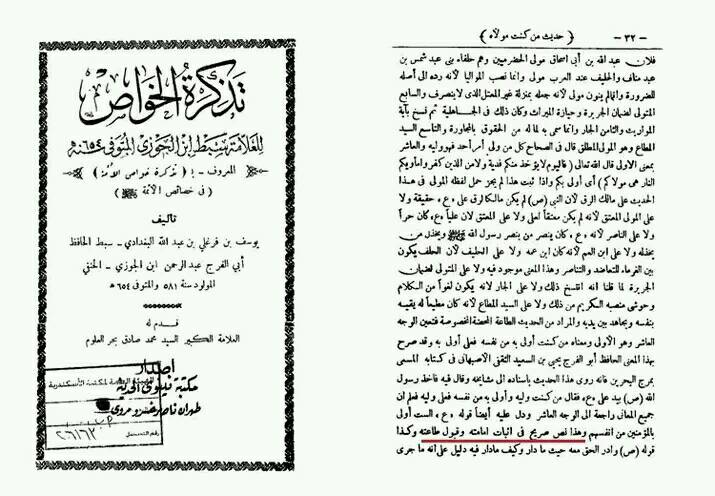 تذكرة الخواص
للعلامة سبط ابن الجوزي المتوفى ٦٥٤ه
المعروف - ب ( تذكرة خواص الأمة )
( في خصائص الأئمة )
تأليف
يوسف بن قرغلي بن عبد الله البغدادي - سبط الحافظ
أبي الفرج عبد الرحمن ابن الجوزي - الحنفي
المولود سنة ٥٨١ والمتوفى ٦٥٤ ه
قدم له
العلامة الكبير السيد محمد صادق بحر العلوم
إصدار
مكتبة نينوى الحديثة
طهران ناصر خسرو مروي
العامة لمكتبة الأسكندرية
رقم التسجيل ٢٦١٦٢
- ٣٢ - ( حديث من كنت مولاه )
فلان عبد الله بن أبي اسحاق مولى الحضرميين وهم حلفاء بنى عبد شمس بن
عبد مناف والحليف عند العرب مولى وانما نصب المواليا لأنه رده الى أصله
للضرورة وانما لم ينون مولى لأنه جعله بمنزلة غير المعتل الذى لا ينصرف والسابع
المتولى لضمان الجريرة وحيازة الميراث وكان ذلك في الجاهلية ثم نسخ بآية
المواريث والثامن الجار وانما سمى به لما له من الحقوق بالمجاورة والتاسع السيد
المطاع وهو المولى المطلق قال في الصحاح كل من ولى أمر أحد فهو وليه والعاشر
بمعنى الاولى قال الله تعالى ( فاليوم لا يؤخذ منكم فدية ولا من الذين كفروا مأويكم
النار هى مولاكم ) أى أولى بكم واذا ثبت هذا لم يجز حمل لفظة المولى في هذا
الحديث على مالك الرق لان النبي (ص) لم يكن مالكا لرق على ﴿ع﴾ حقيقة ولا
على المولى المعتق لأنه لم يكن معتقاً لعلى ولا على المعتق لان علياً ﴿ع﴾ كان حراً
ولا على الناصر لأنه ﴿ع﴾ كان ينصر من ينصر رسول الله ﷺ ويخذل من
يخذله ولا على ابن العم لأنه كان ابن عمه ولا على الحليف لان الحلف يكون
بين الغرماء للتعاضد والتناصر وهذا المعنى موجود فيه ولا على المتولى لضمان
الجريرة لما قلنا انه انتسخ ذلك ولا على الجار لأنه يكون لغواً من الكلام
وحوشى منصبه الكريم من ذلك ولا على السيد المطاع لأنه كان مطيعاً له يقيه
بنفسه ويجاهد بين يديه والمراد من الحديث الطاعة المحضة المخصوصة فتعين الوجه
العاشر وهو الأولى ومعناه من كنت أولى به من نفسه فعلى أولى به وقد صرح
بهذا المعنى الحافظ أبو الفرج يحيى بن السعيد الثقفى الاصبهاني في كتابه المسمى
بمرج البحرين فانه روى هذا الحديث باسناده الى مشايخه وقال فيه فأخذ رسول
الله (ص) بيد على ﴿ع﴾ فقال من كنت وليه وأولى به من نفسه فعلى وليه فعلم ان
جميع المعانى راجعة الى الوجه العاشر ودل عليه أيضاً قوله ﴿ع﴾ الست أولى
بالمؤمنين من انفسهم وهذا نص صريح في اثبات امامته وقبول طاعته وكذا
قوله (ص) وادر الحق معه حيث ما دار وكيف ما دار فيه دليل على أنه ما جرى